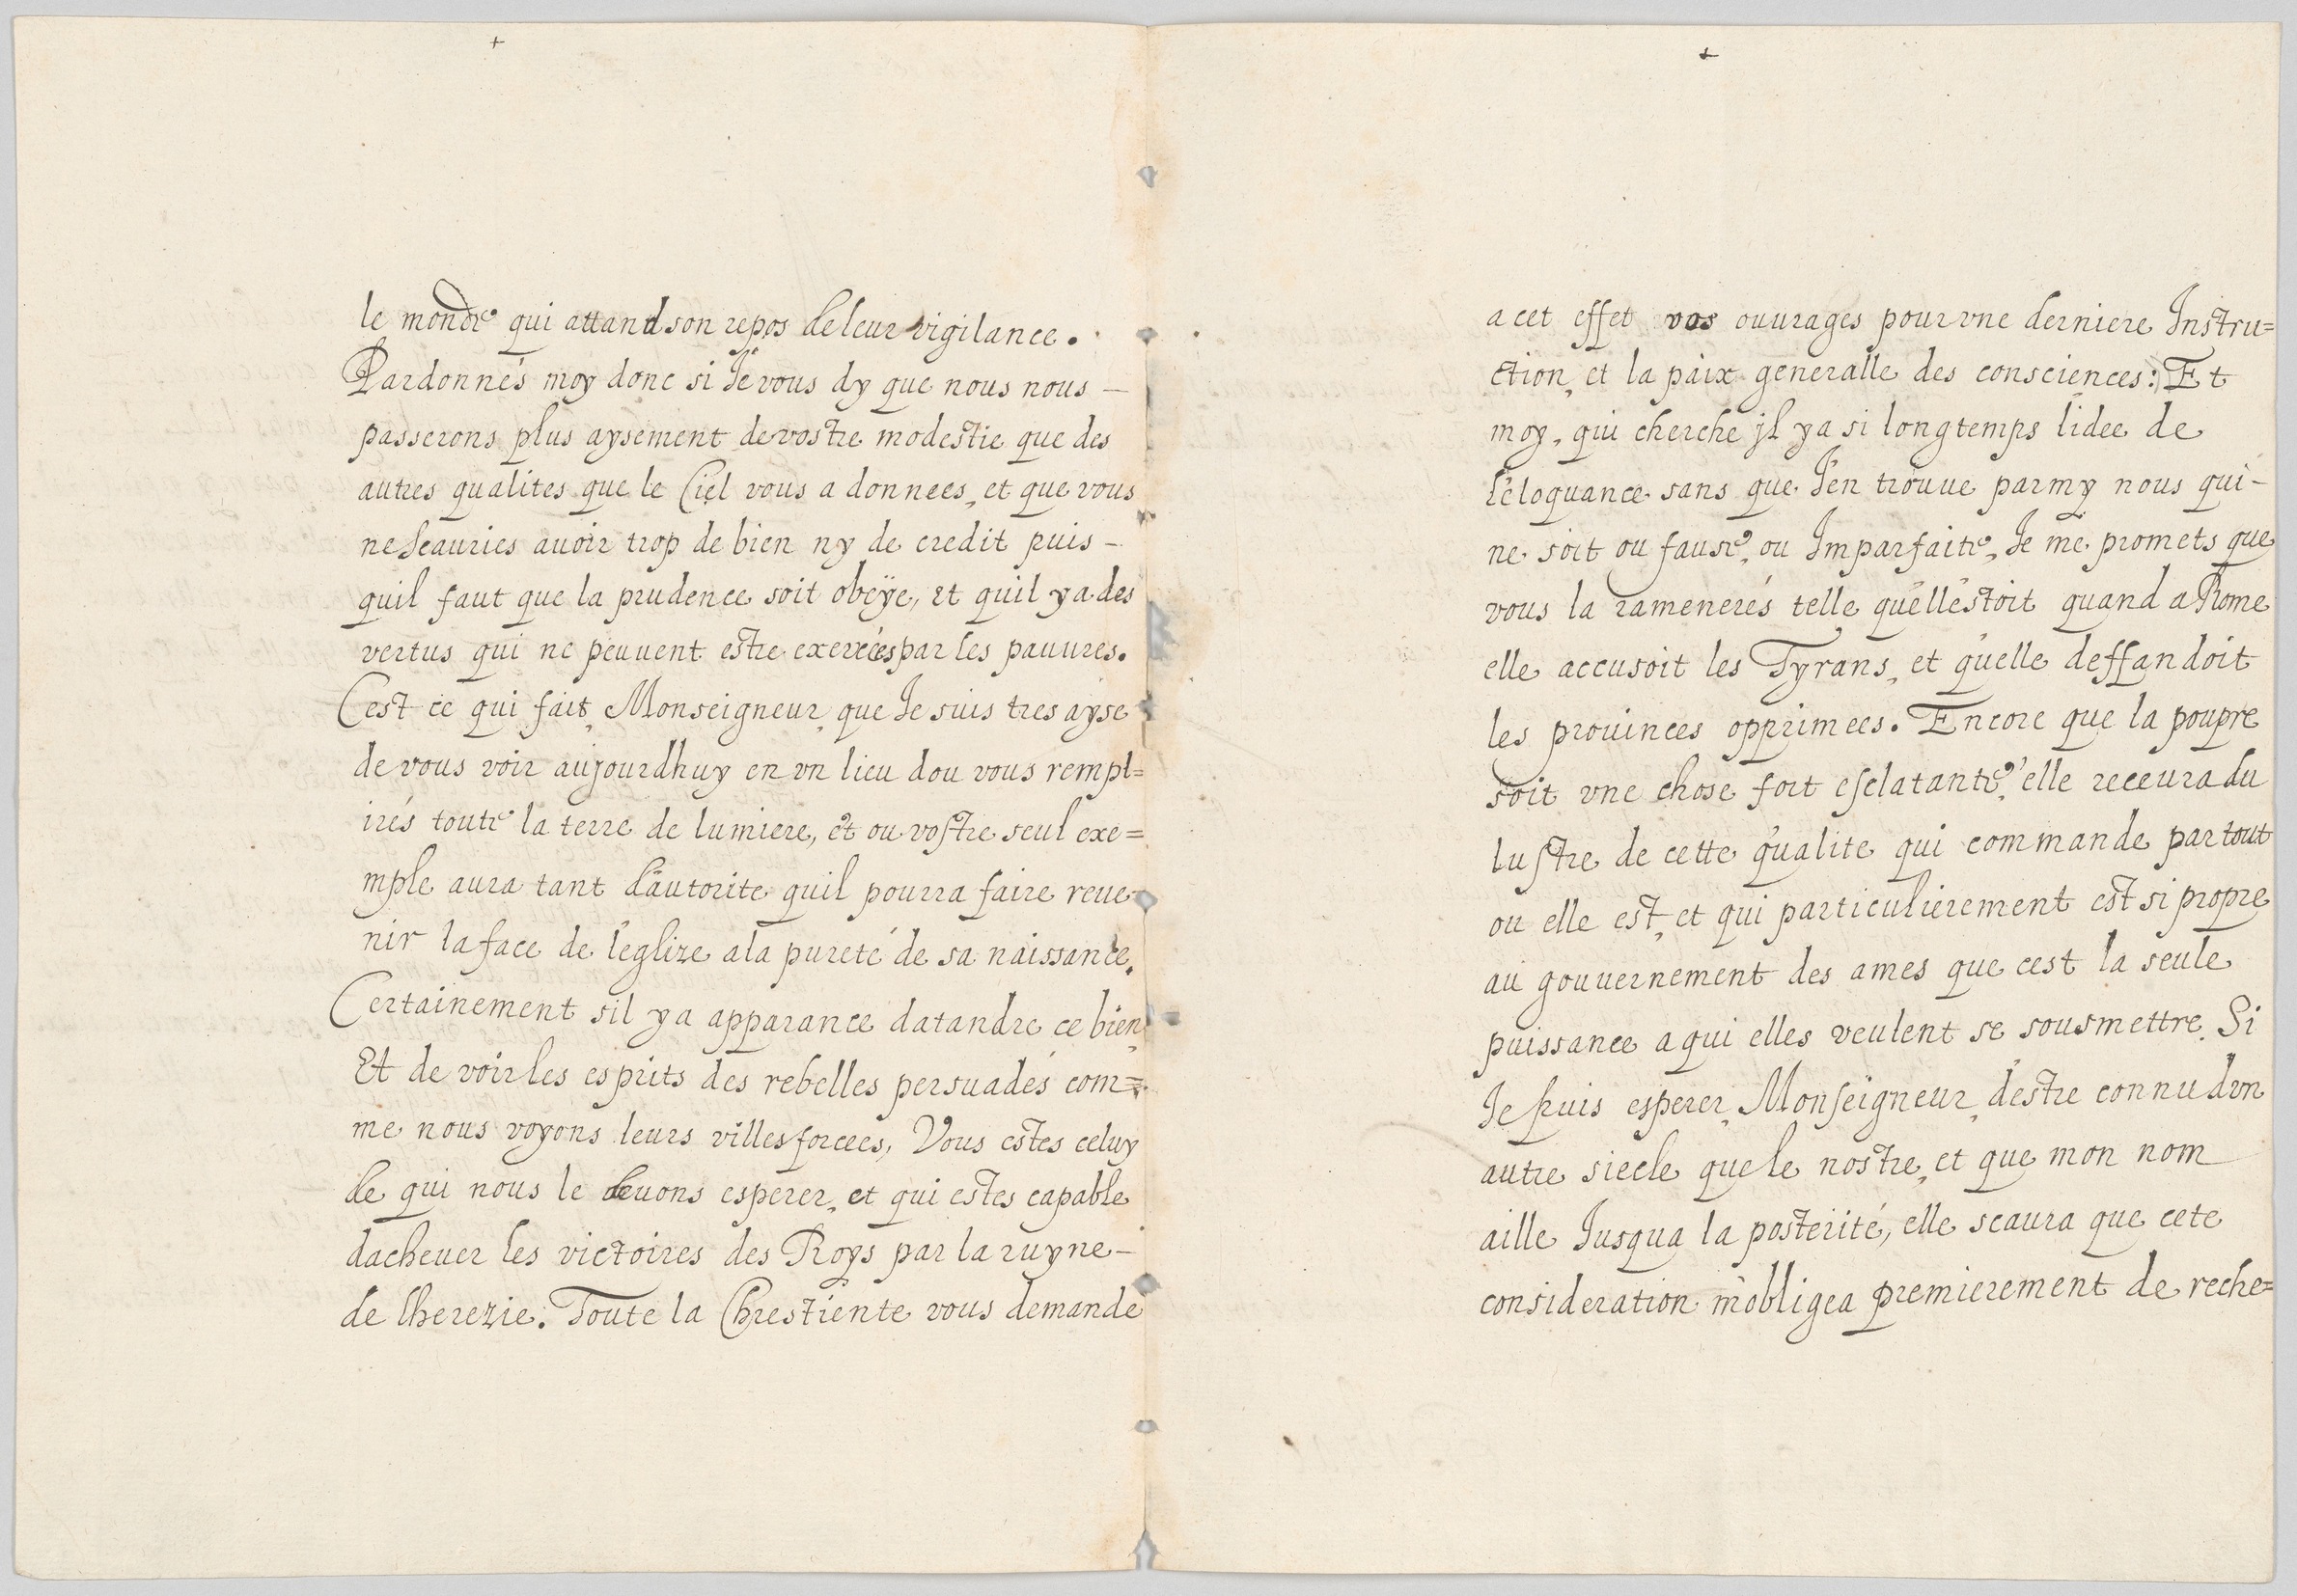 le monde qui attand son repos de leur vigilance.
Pardonnés moy donc si Je vous dy que nous nous –
passerons plus aysement de vostre modestie que des
autres qualites que le Ciel vous a donnees, et que vous
ne scauries auoir trop de bien ny de credit puis –
quil faut que la prudence soit obeÿe, et quil y a des
vertus qui ne peuuent estre exercées par les pauures.
Cest ce qui fait, Monseigneur, que Je suis tres ayse
de vous voir aujourdhuy en vn lieu dou vous rempl=
irés toute la terre de lumiere, et ou vostre seul exe=
mple aura tant d'autorite quil pourra faire reue=
nir la face de l'eglize a la pureté de sa naissance.
Certainement sil y a apparance datandre ce bien,
Et de voir les esprits des rebelles persuadés com=
me nous voyons leurs villes forcees, Vous estes celuy
de qui nous le deuons esperer, et qui estes capable
dacheuer les victoires des Roys par la ruyne –
de lherezie. Toute la Chrestiente vous demande
a cet effet vos ouurages pour vne derniere Instru=
ction, et la paix generalle des consciences: Et
moy, qui cherche jl y a si longtemps lidee de
l'eloquance sans que J'en trouue parmy nous qui –
ne soit ou fause, ou Imparfaite, Je me promets que
vous la ramenerés telle qu'ell'estoit quand a Rome
elle accusoit les Tyrans, et qu'elle deffandoit
les prouinces opprimees. Encore que la poupre
soit vne chose fort esclatante, elle receura du
lustre de cette qualite qui commande par tout
ou elle est, et qui particulierement est si propre
au gouuernement des ames que cest la seule
puissance a qui elles veulent se sousmettre. Si
Je puis esperer, Monseigneur, d'estre connu dvn
autre siecle que le nostre, et que mon nom
aille Jusqua la posterité, elle scaura que cete
consideration m'obligea premierement de reche=